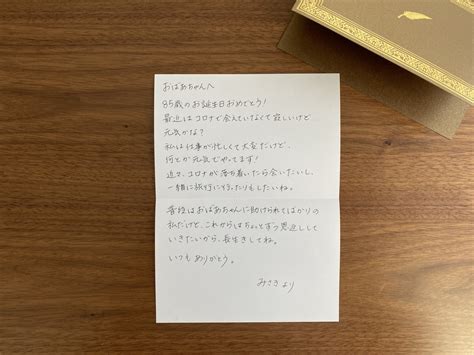 おばあちゃんへ
85歳のお誕生日おめでとう!
最近はコロナで会えていなくて寂しいけど
元気かな?
私は仕事が忙しくて大変だけど、
何とか元気でやってます!
コロナが落ち着いたら会いたいし、
一緒に旅行に行ったりもしたいね。
普段はおばあちゃんに助けられてばかりの
私だけど、これからはちょっとずつ恩返しして
いきたいから、長生きしてね。
いつもありがとう。
みさきより